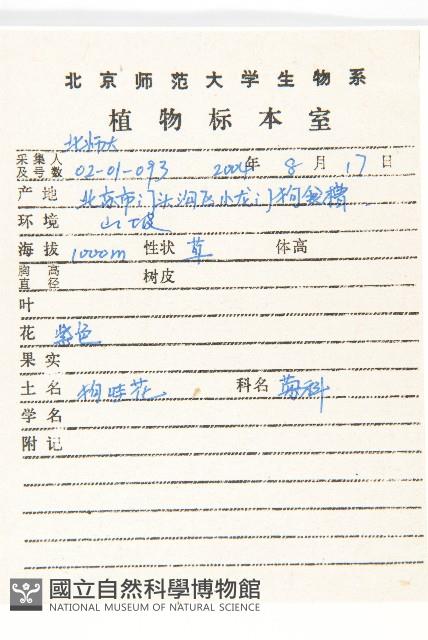 北京师范大学生物系
植物标本室
采集人及号数 北师大 02-01-093 2004年 8月 17日
产地 北京市门头沟区小龙门狗
环境 山坡
海拔 1000m 性状 草 体高
胸高直径 树皮
叶
花 紫色
果实
土名 狗哇花 科名 菊科
学名
附记
國立自然科學博物館
NATIONAL MUSEUM OF NATURAL SCIENCE